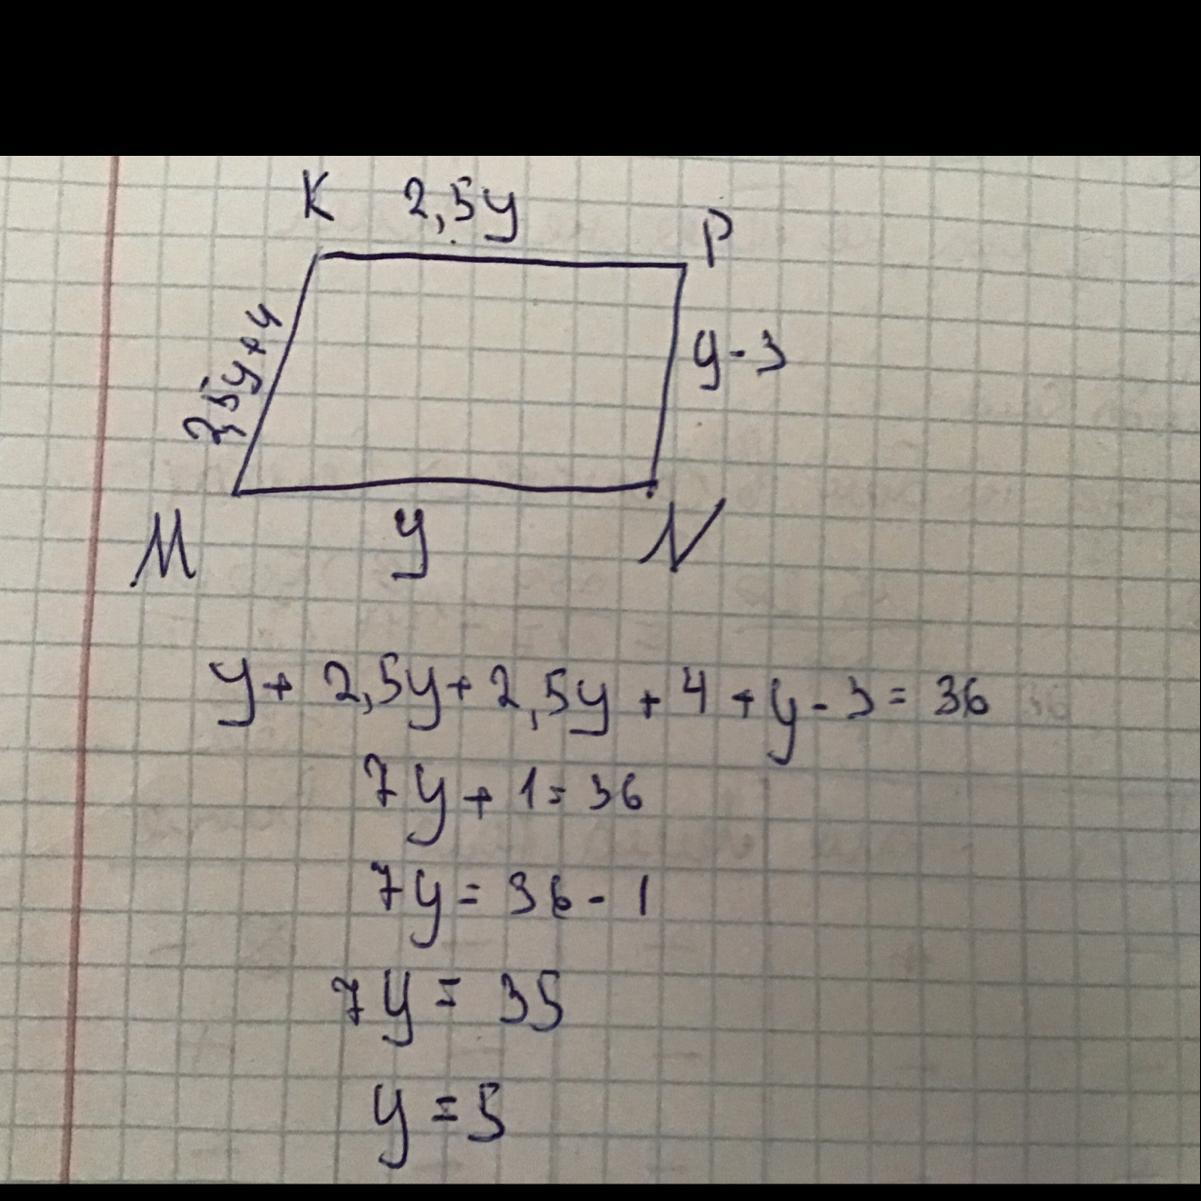 K 2,5y
P
2,5y+4
y-3
M y N
y+ 2,5y+2,5y+4+y-3=36
7y+1=36
7y=36-1
7y=35
y=5